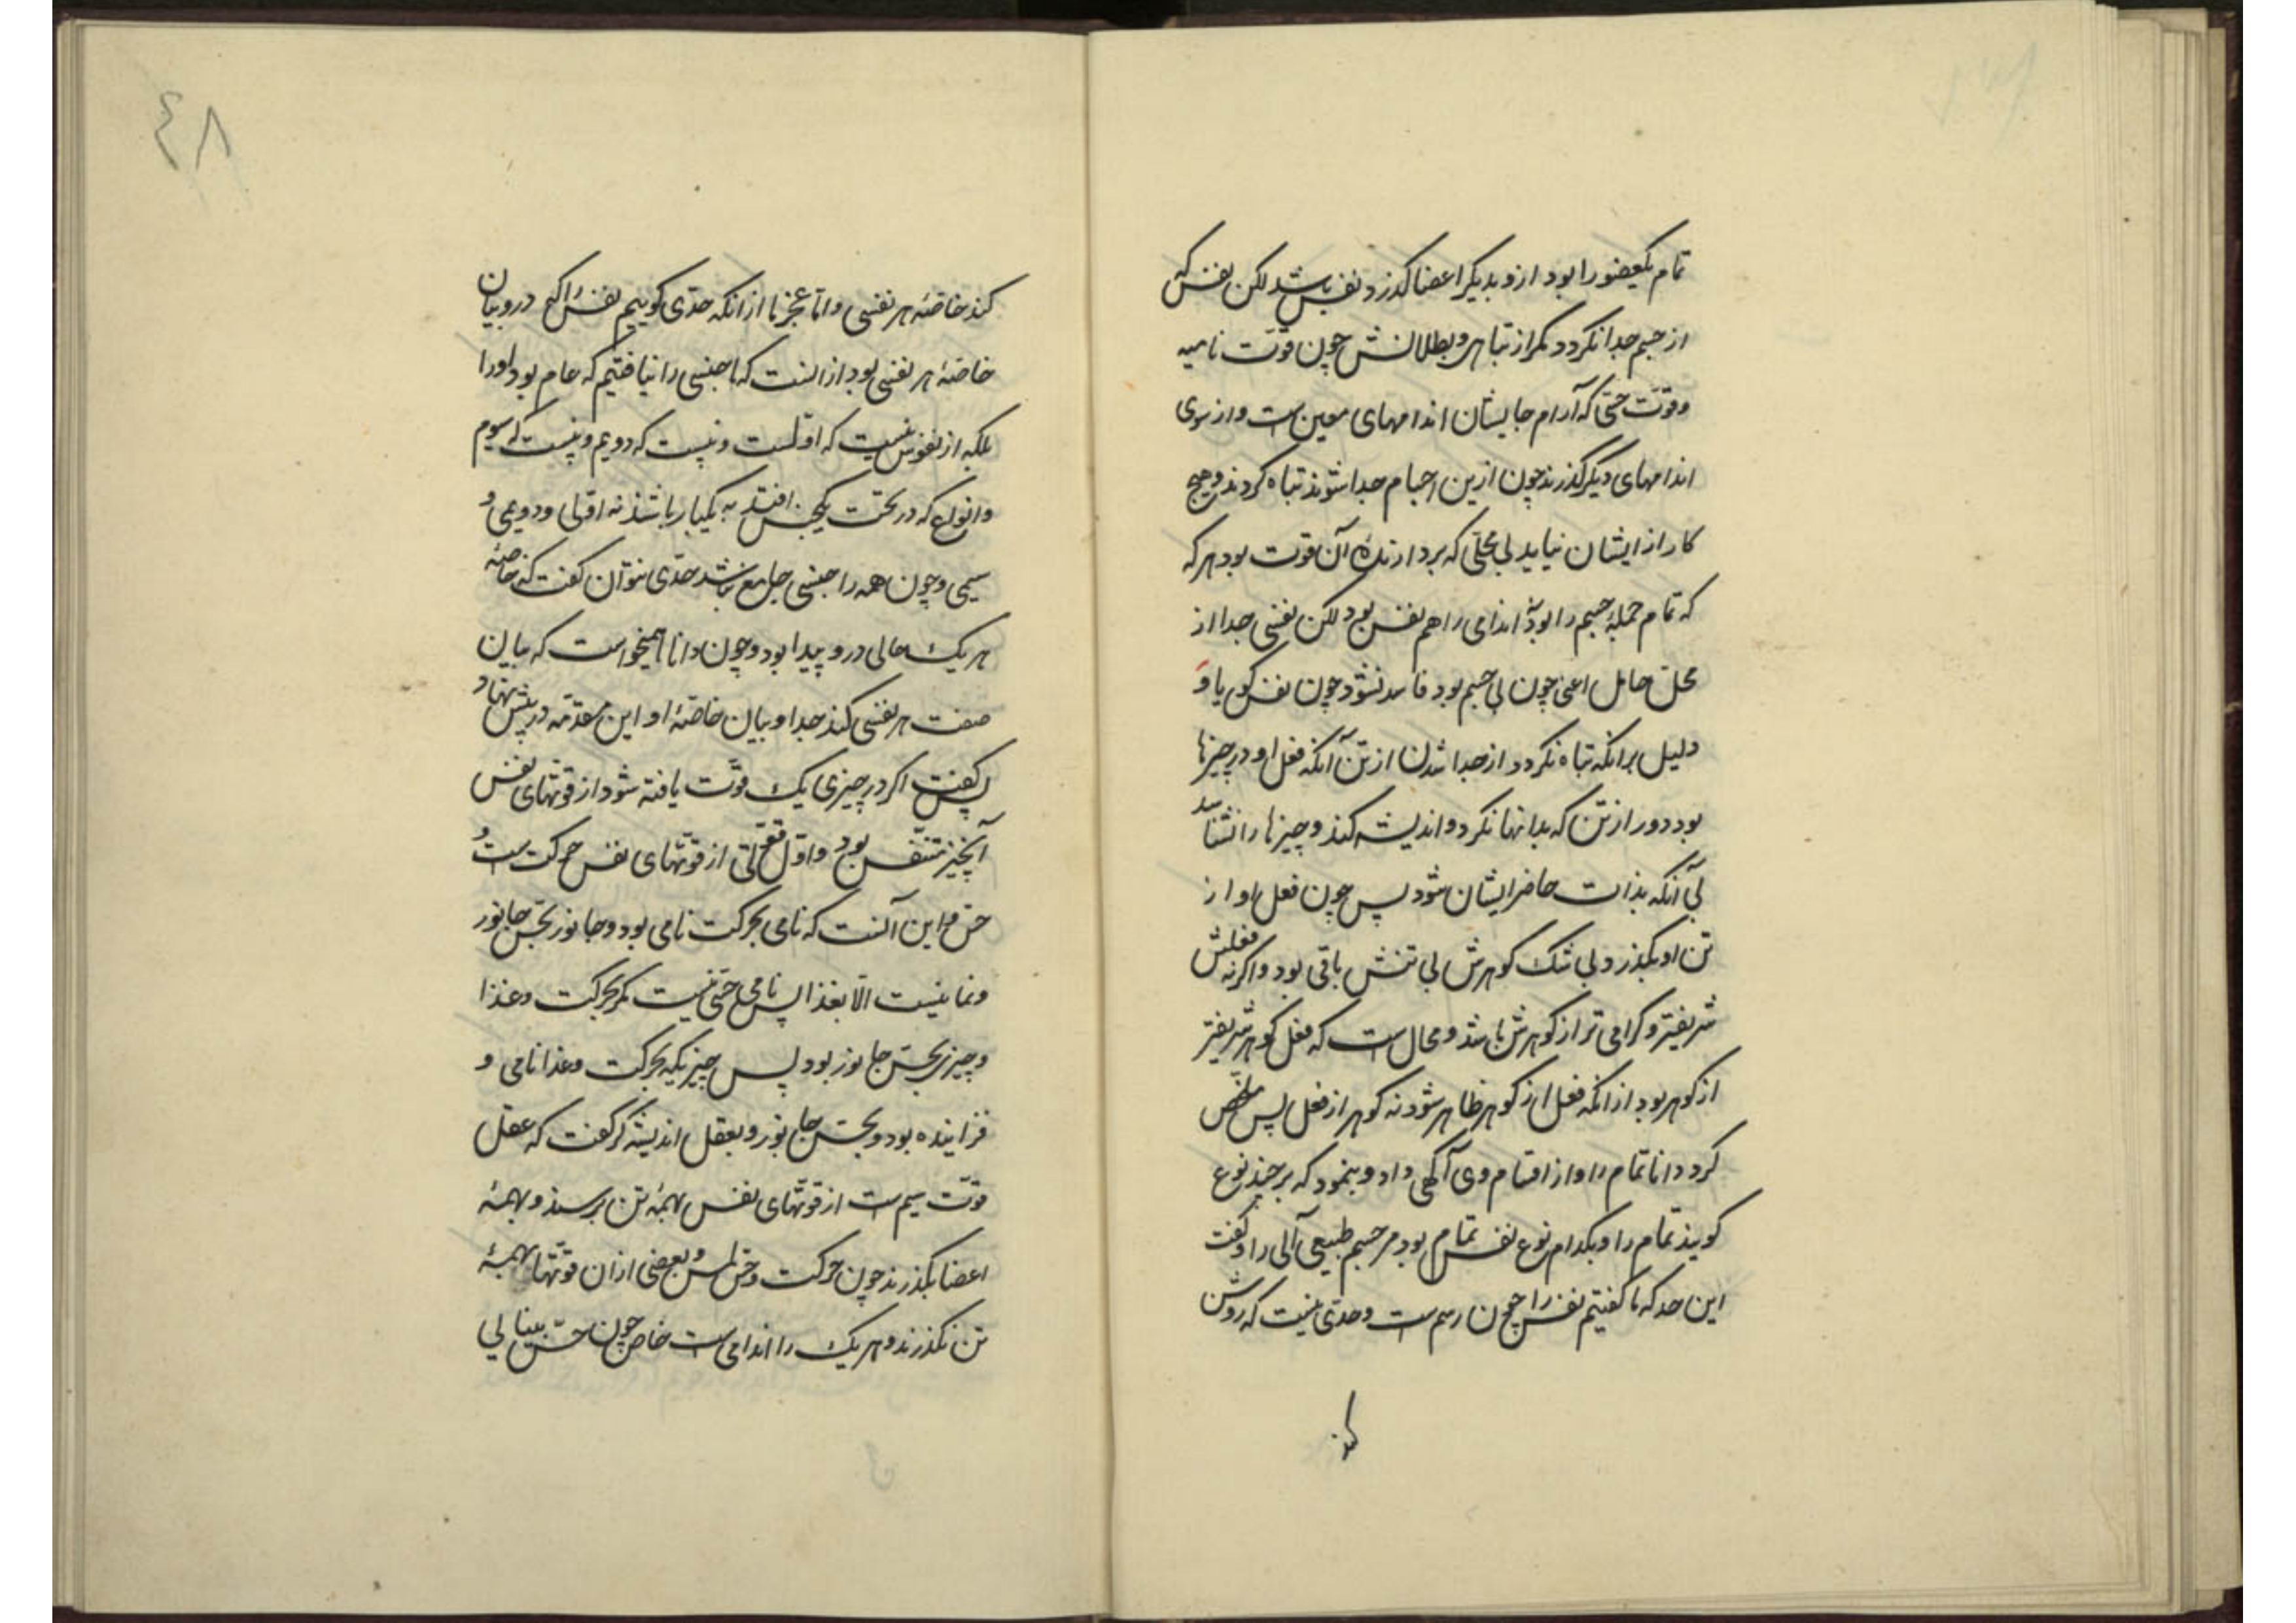 تمام یکعضو را بود ازو بدیکر اعضا کذرد نفس باشد لکن نفس که
از جسم جدا نکردد مکر از تباهی و بطلانش چون قوت نامیه
و قوّت حسّی که آرام جایشان اندامهای معین است و از سوی
اندامهای دیکر کذرند چون ازین اجسام جدا شوند تباه کردند و هیچ
کار از ایشان نیاید بی محلّی که بردارندهٔ آن قوت بود هر که
که تمام جملهٔ جسم را بود اندامی را هم نفس بود لکن نفسی جدا از
محلّ حامل اعنی چون بی جسم بود فاسد نشود چون نفس کویا و
دلیل بر انکه تباه نکردد از جدا شدن از تن آنکه فعل او در چیزها
بود دور از تن که بدانها نکرد و اندیشه کند و چیزها را شناسد
بی آنکه بذات حاضر ایشان شود پس چون فعل او از
تن او بکذرد بی شک کوهرش بی تنش باقی بود و اکرنه فعلش
شریفتر و کرامی تر از کوهرش باشد و محال است که فعل کوهر شریفتر
از کوهر بود از انکه فعل از کوهر ظاهر شود نه کوهر از فعل پس ملخّص
کرد دانا تمام را و از اقسام وی آکهی داد و بنمود که بر چند نوع
کویند تمام را و بکدام نوع نفس تمام بود مر جسم طبیعی آلی را و کفت
این حد که ما کفتیم نفس را چون رسم است و حدّی نیست که روشن
کند
٤٨
کند خاصّهٔ هر نفسی و امّا عجز ما از انکه حدّی کوییم نفس را کی درو بیان
خاصّهٔ هر نفسی بود از انست که ما جنسی را نیافتیم که عام بود اورا
بلکه از نفوس نیست که اوّلست و نیست که دویم و نیست که سیوم
و انواع که در تحت یکجنس افتد به یکبار باشند نه اوّلی و دویمی و
سیمی و چون همه را جنسی جامع نباشد حدّی نتوان کفت که خاصّهٔ
هر یک حالی درو پیدا بود و چون دانا همیخواست که بیان
صفت هر نفسی کند جدا و بیان خاصّهٔ او این مقدّمه در پیش نهاد
پس کفت اکر در چیزی یک قوّت یافته شود از قوتهای نفس
آنچیز متنفّس بود و اوّل قوّتی از قوّتهای نفس حرکت است و
حسّ و این آنست که نامی بحرکت نامی بود و جانور بحسّ جانور
و نما نیست الّا بغذا پس نامی حسّی نیست مکر بحرکت و غذا
و چیزی بحسّ جانور بود پس چیزیکه بحرکت و غذا نامی و
فزاینده بود و بحسّ جانور و بعقل اندیشه کر کفت که عقل
قوّت سیم است از قوّتهای نفس بهمهٔ تن برسند و بهمهٔ
اعضا بکذرند چون حرکت و حسّ لمس و بعضی ازان قوّتها بهمهٔ
تن نکذرند و هر یک را اندامی است خاص چون حسّ بینایی